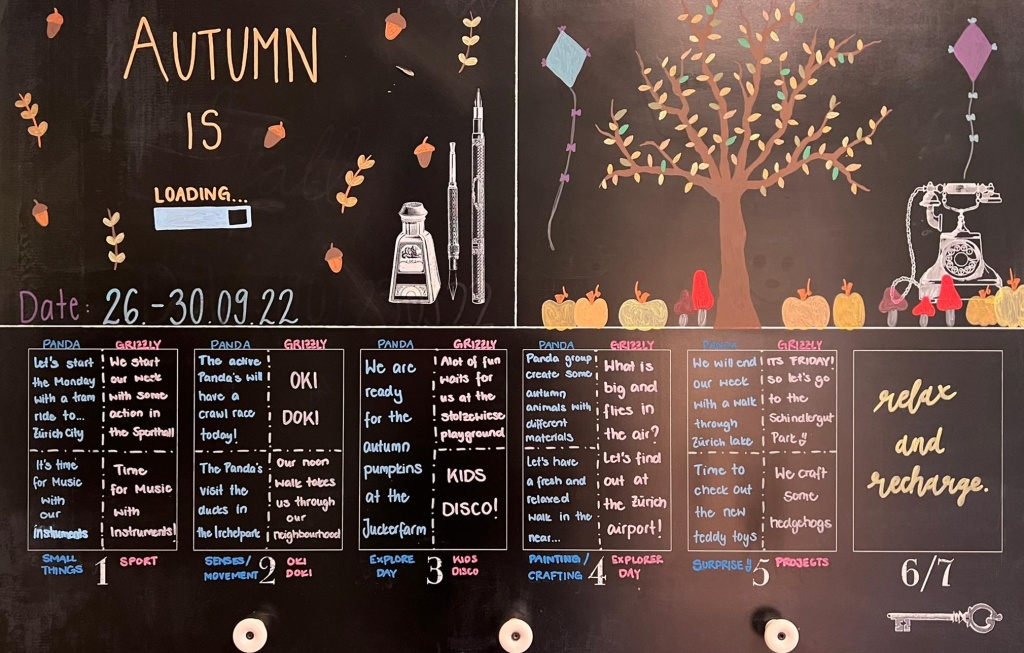 AUTUMN
IS
LOADING...
Date: 26.-30.09.22
PANDA
Let's start
the Monday
with a tram
ride to...
Zürich City
It's time
for Music
with
our
instruments
GRIZZLY
We start
our week
with some
action in
the Sporthall
Time
for Music
with
Instruments!
SMALL
THINGS
1
SPORT
PANDA
The active
Panda's will
have a
crawl race
today!
The Panda's
visit the
ducks in
the Irchelpark
GRIZZLY
OKI
DOKI
Our noon
walk takes
us through
our
neighbourhood
SENSES/
MOVEMENT
2
OKI
DOKI
PANDA
We are
ready
for the
autumn
pumpkins
at the
Juckerfarm
GRIZZLY
Alot of fun
waits for
us at the
stolzewiese
playground
KIDS
DISCO!
EXPLORE
DAY
3
KIDS
DISCO
PANDA
Panda group
create some
autumn
animals with
different
materials
Let's have
a fresh and
relaxed
walk in the
near...
GRIZZLY
What is
big and
flies in
the air?
Let's find
out at
the Zürich
airport!
PAINTING/
CRAFTING
4
EXPLORER
DAY
PANDA
We will end
our week
with a walk
through
Zürich lake
Time to
check out
the new
teddy toys
GRIZZLY
ITS FRIDAY!
so let's go
to the
Schindlergut
Park
We craft
some
hedgehogs
SURPRISE
5
PROJECTS
relax
and
recharge.
6/7